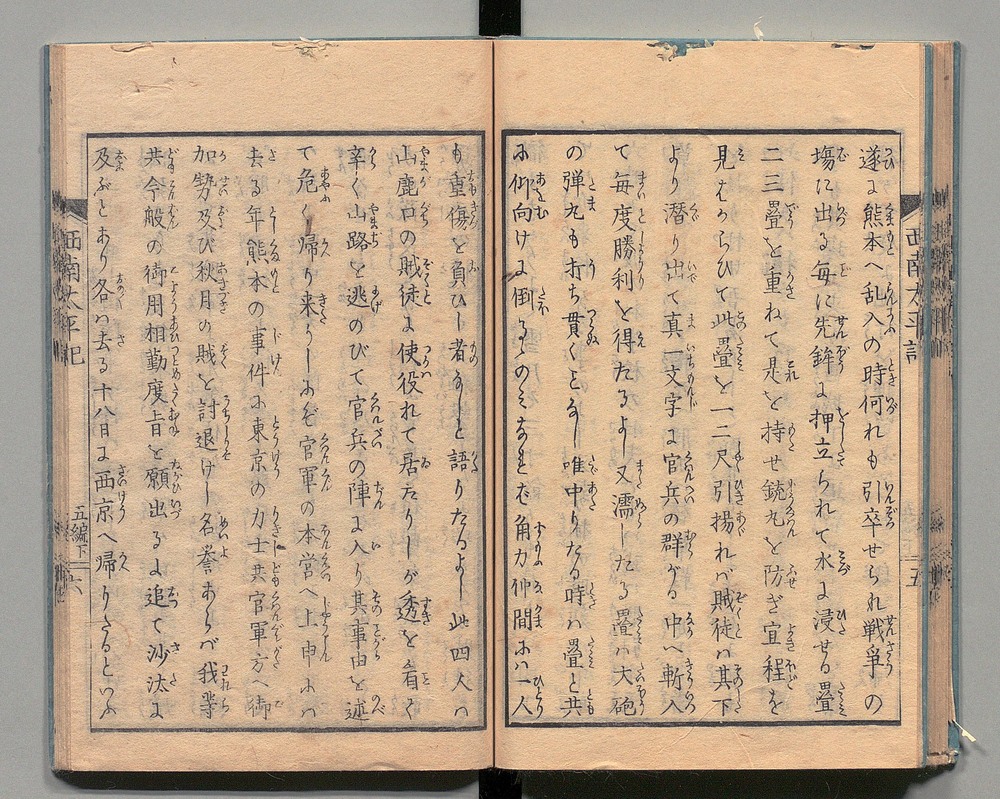 遂に熊本へ乱入の時何れも引卒せられ戦争の
塲に出る毎に先鉾に押立られて水に浸せる疊
二三疊を重ねて是を持せ銃丸を防ぎ宜程を
見はからひて此疊を一二尺引揚れバ賊徒ハ其下
より潜り出て真一文字に官兵の群がる中へ斬入
て毎度勝利を得たるよし又濡したる疊ハ大砲
の弾丸も打ち貫くとなし唯中りたる時ハ疊と共
に仰向けに倒るゝのみなれど角力仲間にハ一人
も重傷を負ひし者なしと語りたるよし此四人ハ
山鹿口の賊徒に使役れて居たりしが透を看て
辛く山路を逃のびて官兵の陣に入り其事由を述
て危く帰り来りしにぞ官軍の本営へ上申にハ
去る年熊本の事件に東京の力士共官軍方へ御
加勢及び秋月の賊を討退けし名誉あらバ我等
共今般の御用相勤度旨を願出るに追て沙汰に
及ぶとあり各ハ去る十八日に西京へ帰りたるといふ
西南太平記
五
西南太平記
五編下
六